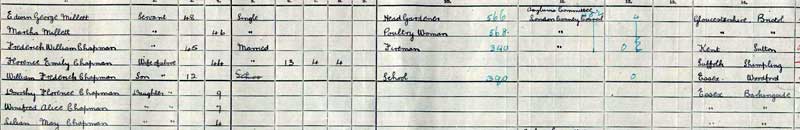 Edwin George Millett Servant 48 Single Head Gardener 566 Asylums Committee London County Council 4 Gloucestershire Bristol
Martha Millett " 46 " Poultry Woman 568 " "
Frederick William Chapman " 45 Married Fireman 340 " 0 Kent Sutton
Florence Emily Chapman Wife of above 44 " 13 4 4 Suffolk Shimpling
William Frederick Chapman Son " 12 School School 390 0 Essex Woodford
Dorothy Florence Chapman Daughter " 9 Essex Barkingside
Winifred Alice Chapman " 7 " "
Lilian May Chapman " 4 " "